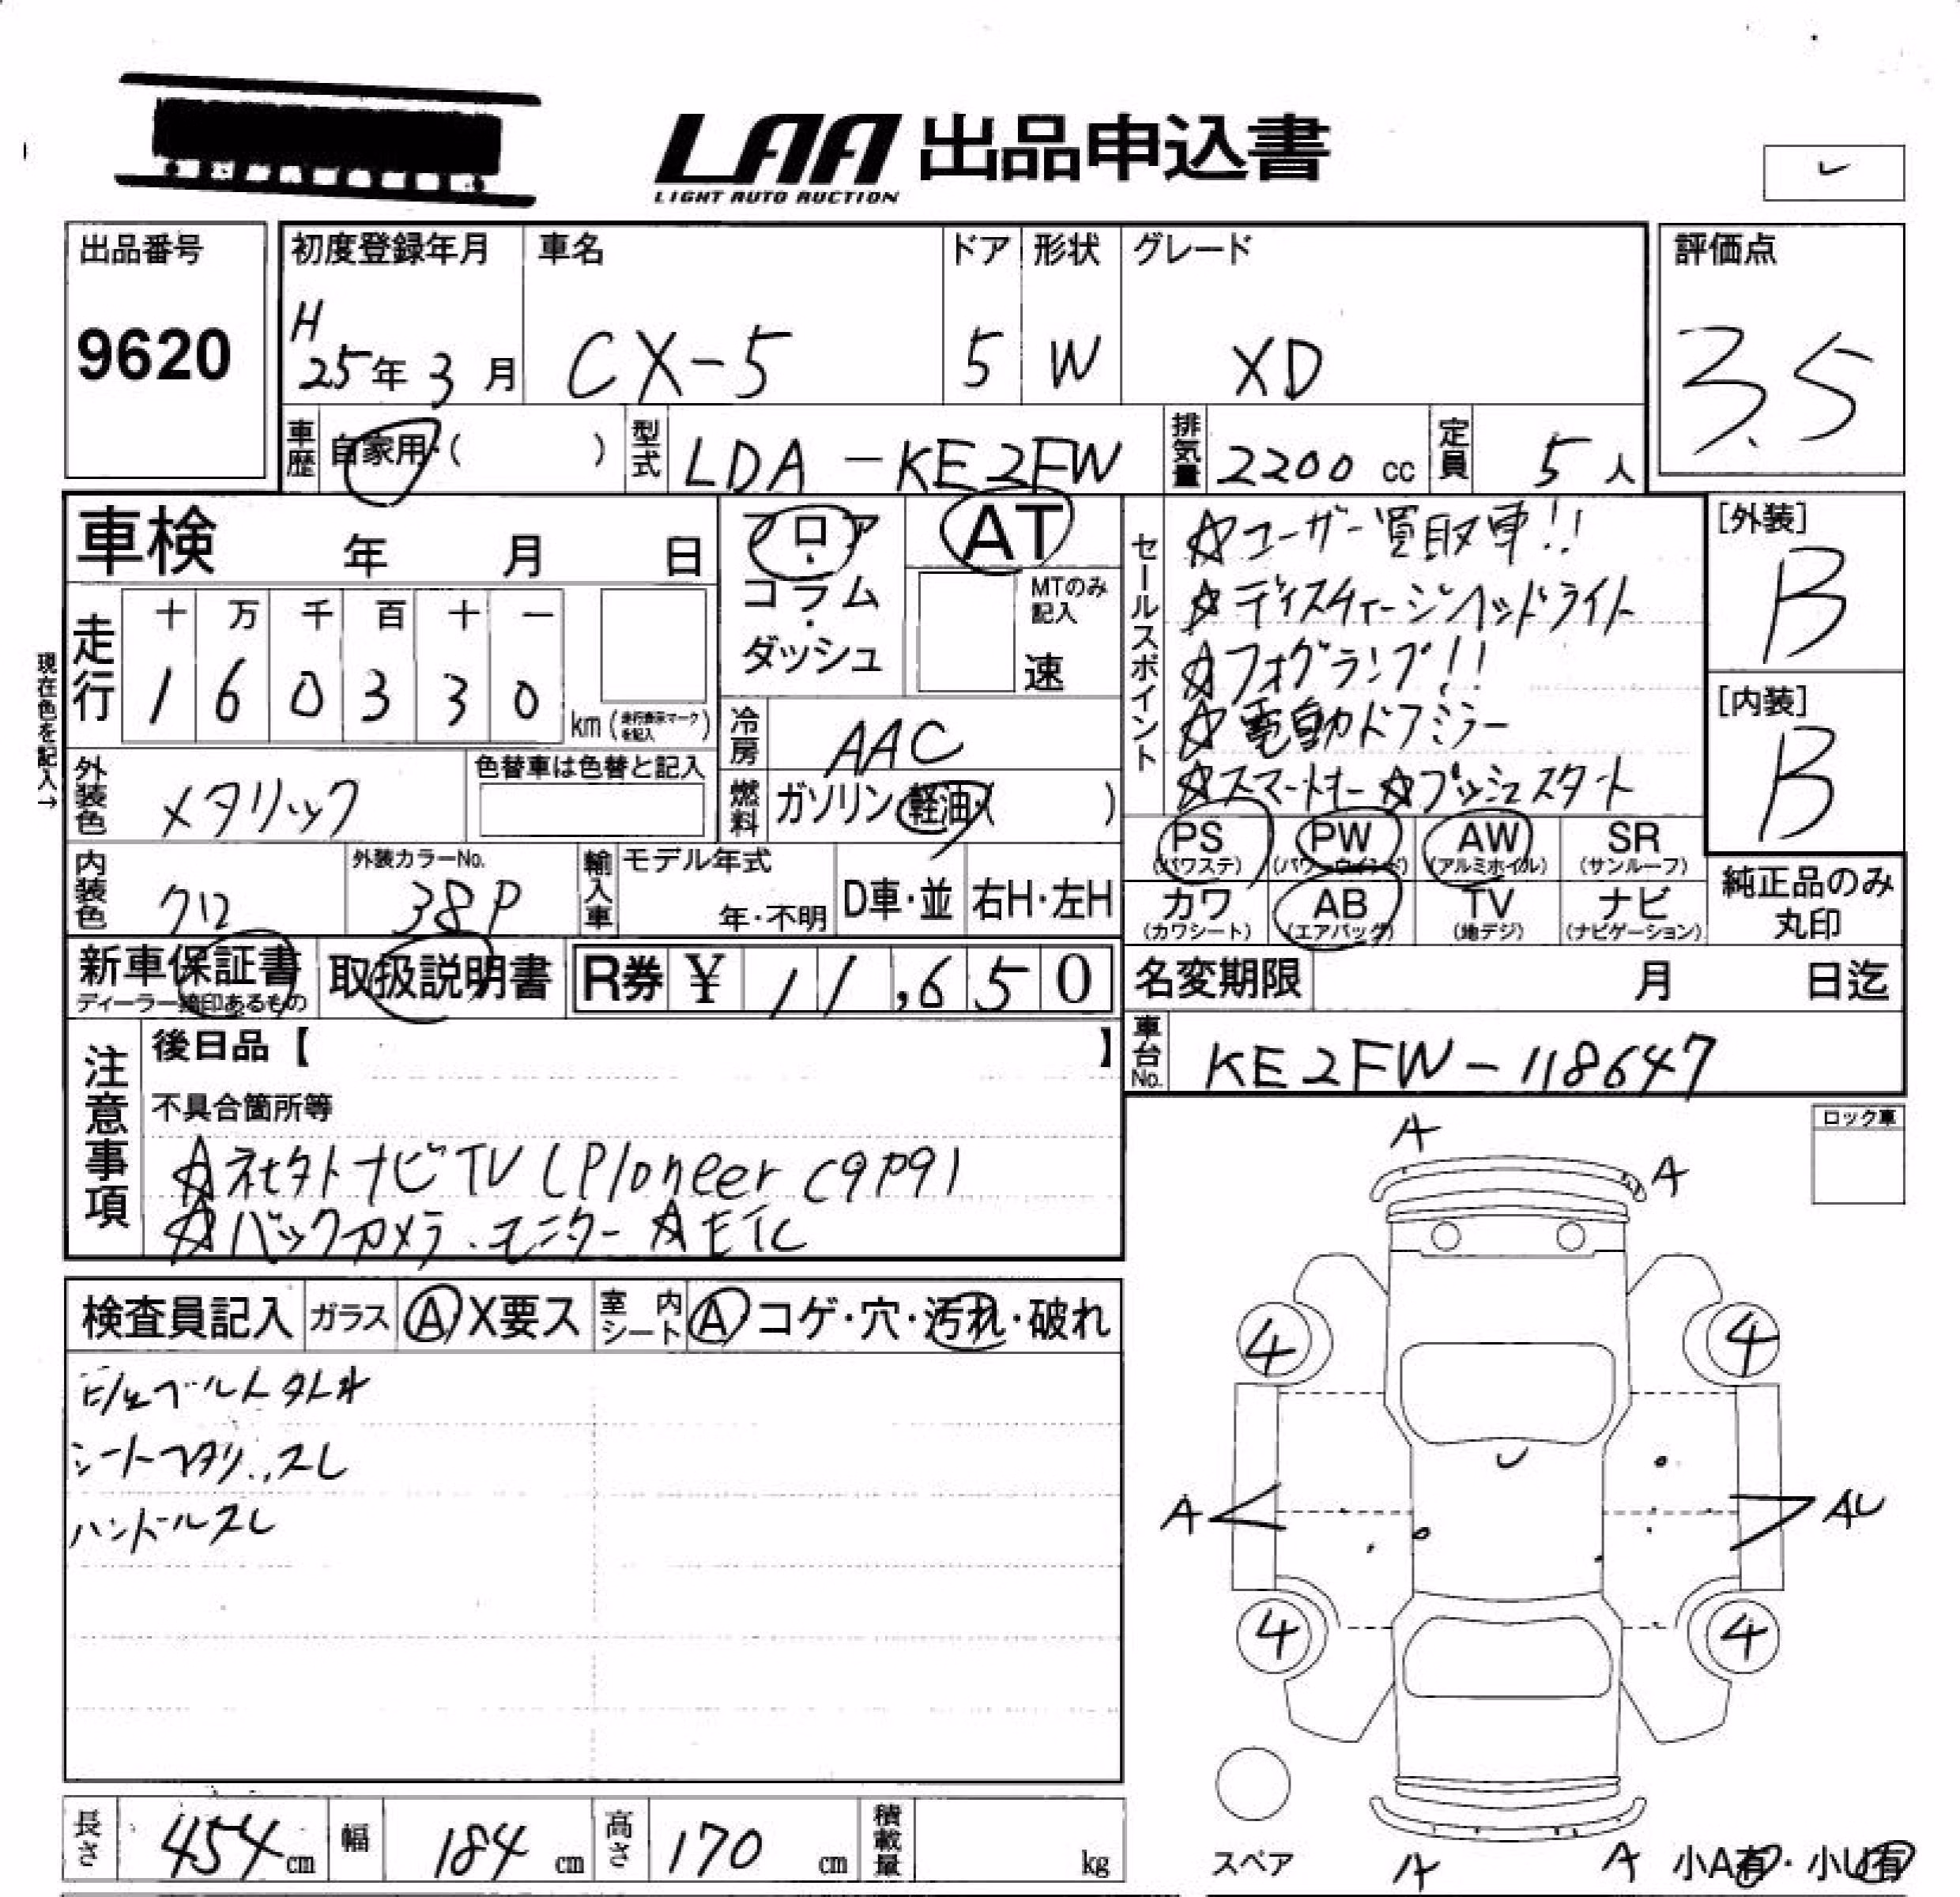 LAA 出品申込書
LIGHT AUTO AUCTION
出品番号
9620
初度登録年月
H
25年 3月
車名
CX-5
ドア
5
形状
W
グレード
XD
評価点
3.5
車歴
自家用・( )
型式
LDA-KE2FW
排気量
2200 cc
定員
5人
車検 年 月 日
フロア・コラム・ダッシュ
AT
MTのみ記入
速
現在色を記入→
走行
十 万 千 百 十 一
1 6 0 3 3 0
km (走行表示マークを記入)
冷房
AAC
外装色
メタリック
色替車は色替と記入
燃料
ガソリン・軽油・( )
内装色
クロ
外装カラーNo.
38P
輸入車
モデル年式
年・不明
D車・並
右H・左H
新車保証書
取扱説明書
R券 ¥ 11,650
セールスポイント
☆ユーザー買取車!!
☆ディスチャージヘッドライト
☆フォグランプ!!
☆電動ドアミラー
☆スマートキー ☆プッシュスタート
[外装]
B
[内装]
B
PS (パワステ)
PW (パワーウインド)
AW (アルミホイル)
SR (サンルーフ)
カワ (カワシート)
AB (エアバッグ)
TV (地デジ)
ナビ (ナビゲーション)
純正品のみ丸印
名変期限 月 日迄
車台No.
KE2FW-118647
注意事項
後日品【 】
不具合箇所等
☆社外ナビTV (Pioneer C9P91
☆バックカメラ・モニター ☆ETC
検査員記入
ガラス
A X要ス
室内シート
A コゲ・穴・汚れ・破れ
ハンドルスレ
ロック車
A
A
4
4
A
AU
4
4
スペア
A
A
小A有・小U有
長さ
454 cm
幅
184 cm
高さ
170 cm
積載量
kg